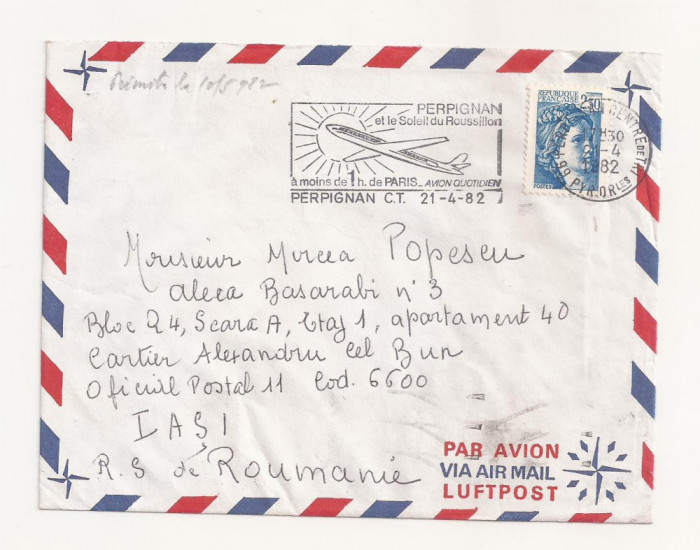 Primită la 10/5 982
PERPIGNAN
et le Soleil du Roussillon
à moins de 1 h. de PARIS_ AVION QUOTIDIEN
PERPIGNAN C.T. 21-4-82
REPUBLIQUE FRANÇAISE
2,30
POSTES
PERPIGNAN CENTRE DE TRI
17H30
21-4
1982
66 PYR. ORles
Monsieur Mircea Popescu
aleea Basarabi n° 3
Bloc Q4, Scara A, Etaj 1, apartament 40
Cartier Alexandru cel Bun
Oficiul Postal 11 Cod. 6600
IAŞI
R.S de Roumanie
PAR AVION
VIA AIR MAIL
LUFTPOST